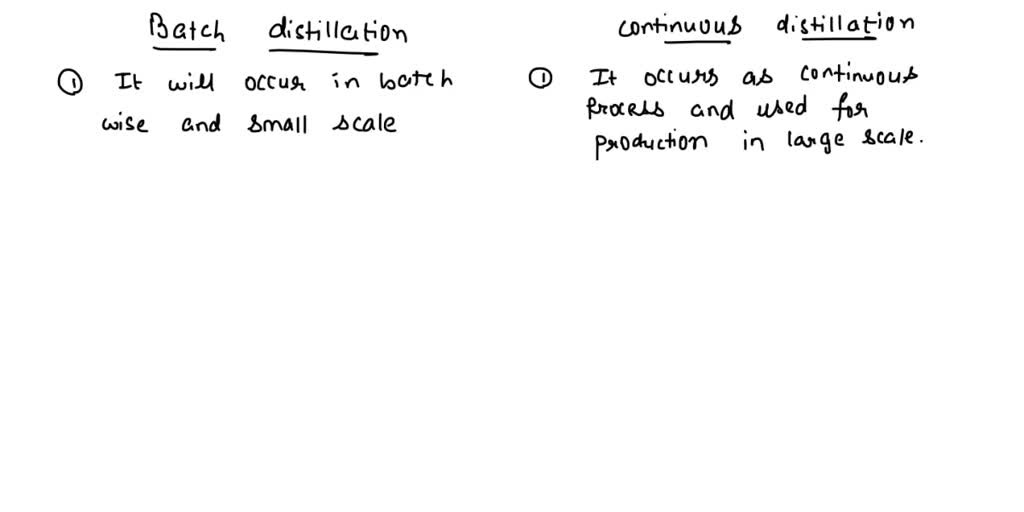 Batch distillation
① It will occur in batch
wise and small scale
continuous distillation
① It occurs as continuous
process and used for
production in large scale.